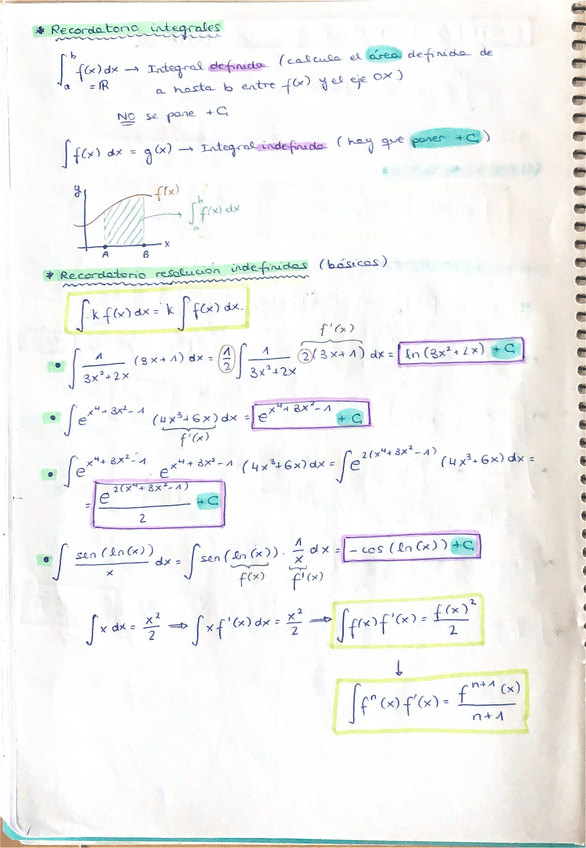 * Recordatorio integrales
∫_a^b f(x) dx → Integral definida (calcula el área definida de
= ℝ a hasta b entre f(x) y el eje OX)
NO se pone +C
∫ f(x) dx = g(x) → Integral indefinida (hay que poner +C)
y
f(x)
∫_a^b f(x) dx
A B x
* Recordatorio resolución indefinidas (básicas)
∫ k f(x) dx = k ∫ f(x) dx.
f'(x)
• ∫ 1/(3x²+2x) (3x+1) dx = 1/2 ∫ 1/(3x²+2x) 2(3x+1) dx = ln(3x²+2x) + C
• ∫ e^(x⁴+3x²-1) (4x³+6x) dx = e^(x⁴+3x²-1) + C
f'(x)
• ∫ e^(x⁴+3x²-1) · e^(x⁴+3x²-1) (4x³+6x) dx = ∫ e^(2(x⁴+3x²-1)) (4x³+6x) dx =
= e^(2(x⁴+3x²-1))/2 + C
• ∫ sen(ln(x))/x dx = ∫ sen(ln(x)) · 1/x dx = -cos(ln(x)) + C
f(x) f'(x)
∫ x dx = x²/2 ⇒ ∫ x f'(x) dx = x²/2 → ∫ f(x) f'(x) = f(x)²/2
↓
∫ fⁿ(x) f'(x) = fⁿ⁺¹(x)/(n+1)